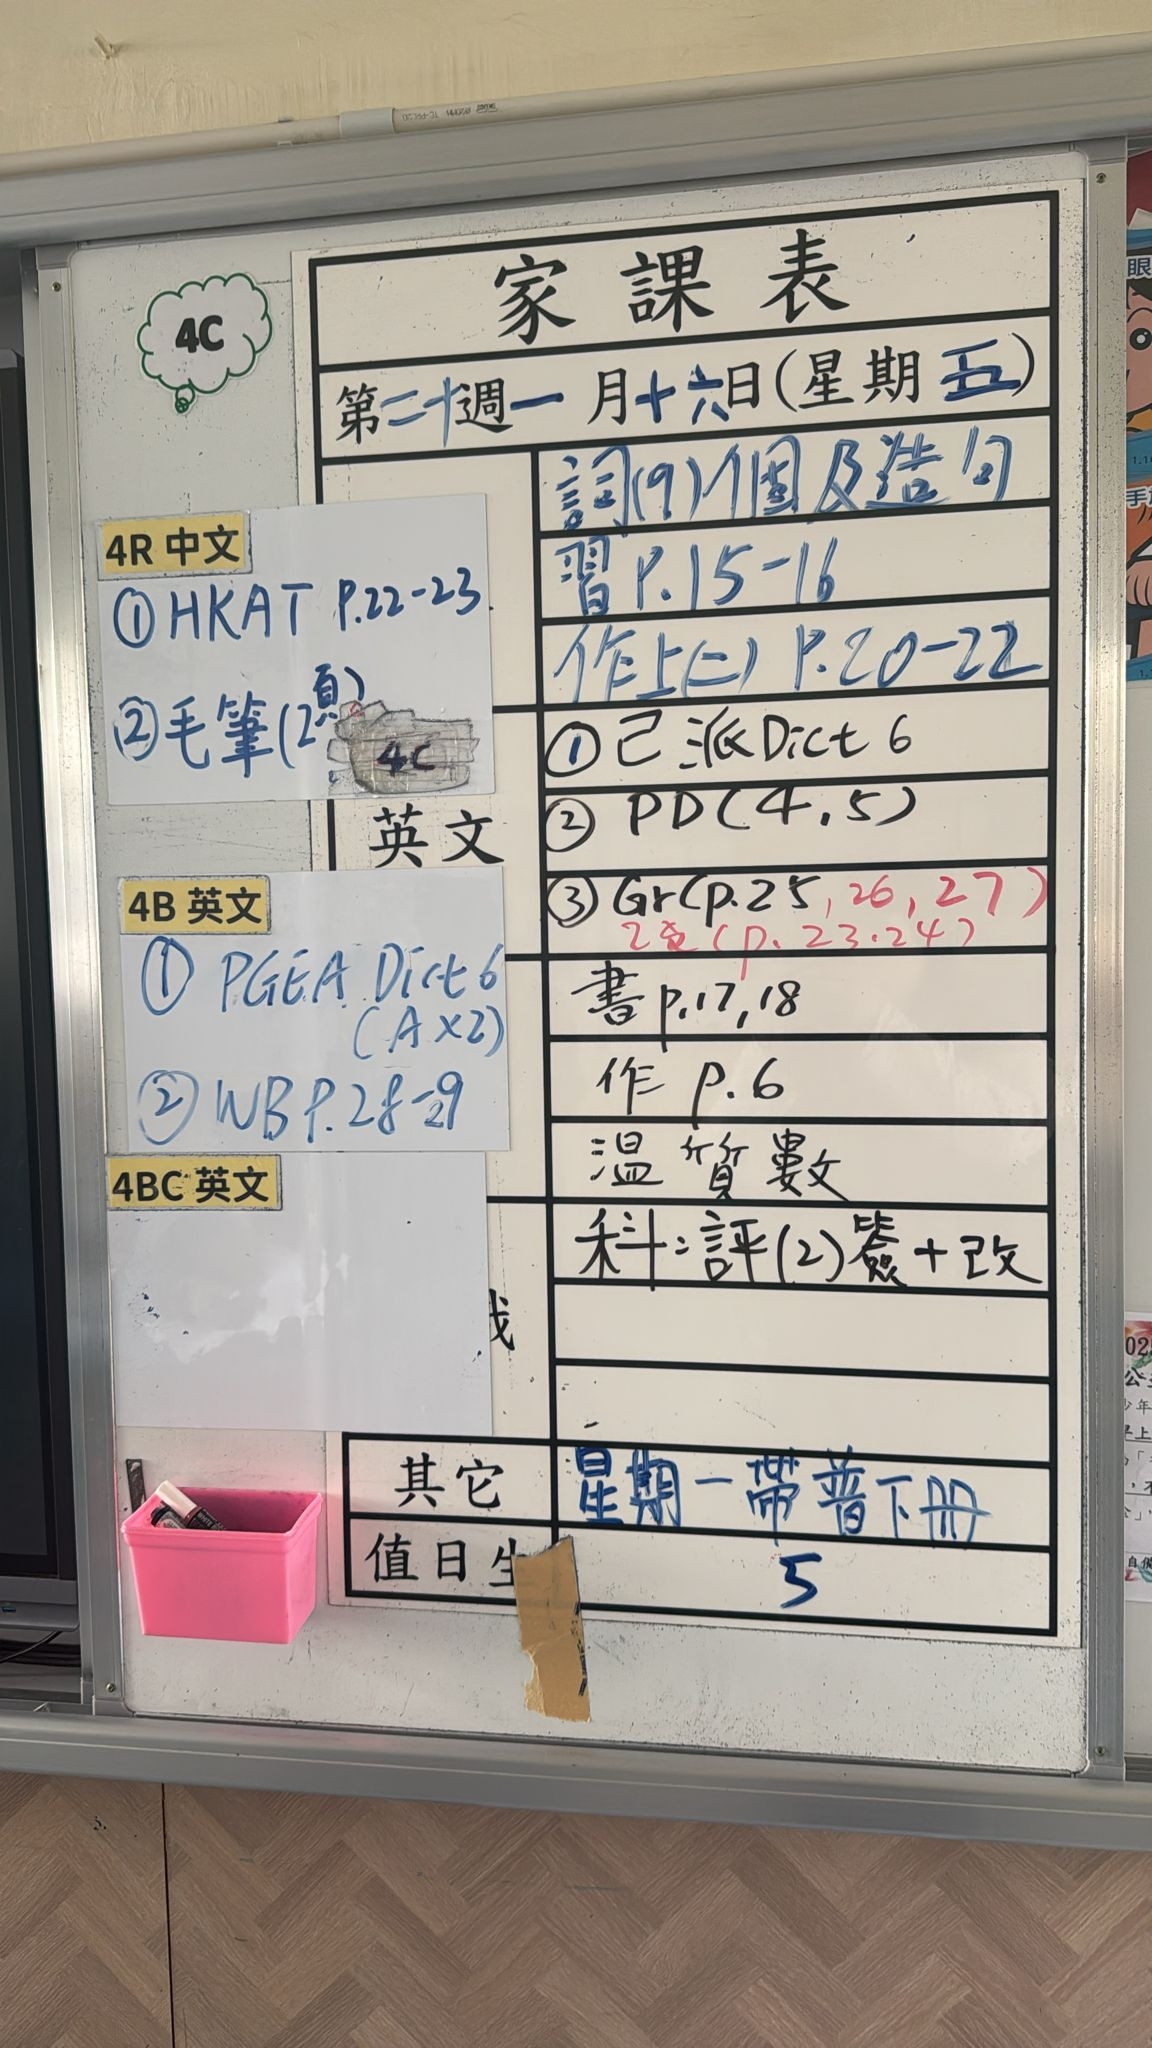 4C
家課表
第二十週一月十六日(星期五)
詞(9)個及造句
習P.15-16
作上(二) P.20-22
4R 中文
①HKAT P.22-23
②毛筆(2頁)
4C
英文
①已派Dict 6
②PD(4,5)
③Gr(p.25,26,27)
(p.23.24)
4B 英文
①PGEA Dict 6
(A×2)
②WB P.28-29
書p.17,18
作 p.6
溫質數
4BC 英文
科:評(2)簽+改
其它
星期一帶普下冊
值日生
5